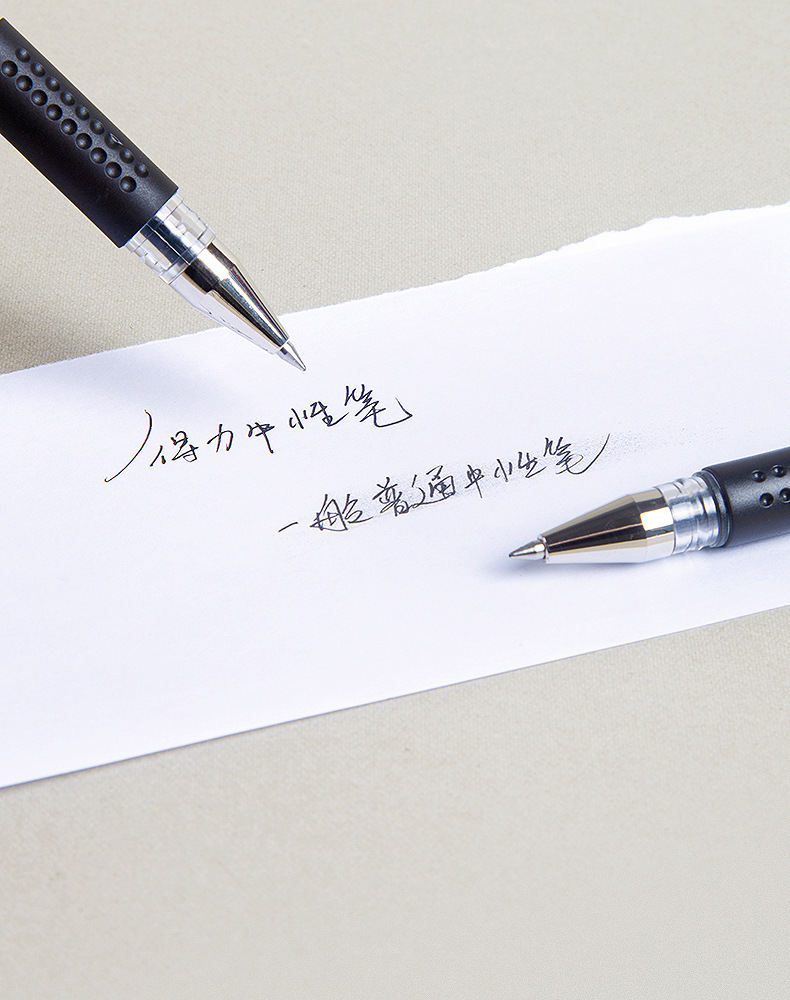 得力中性笔
一般普通中性笔